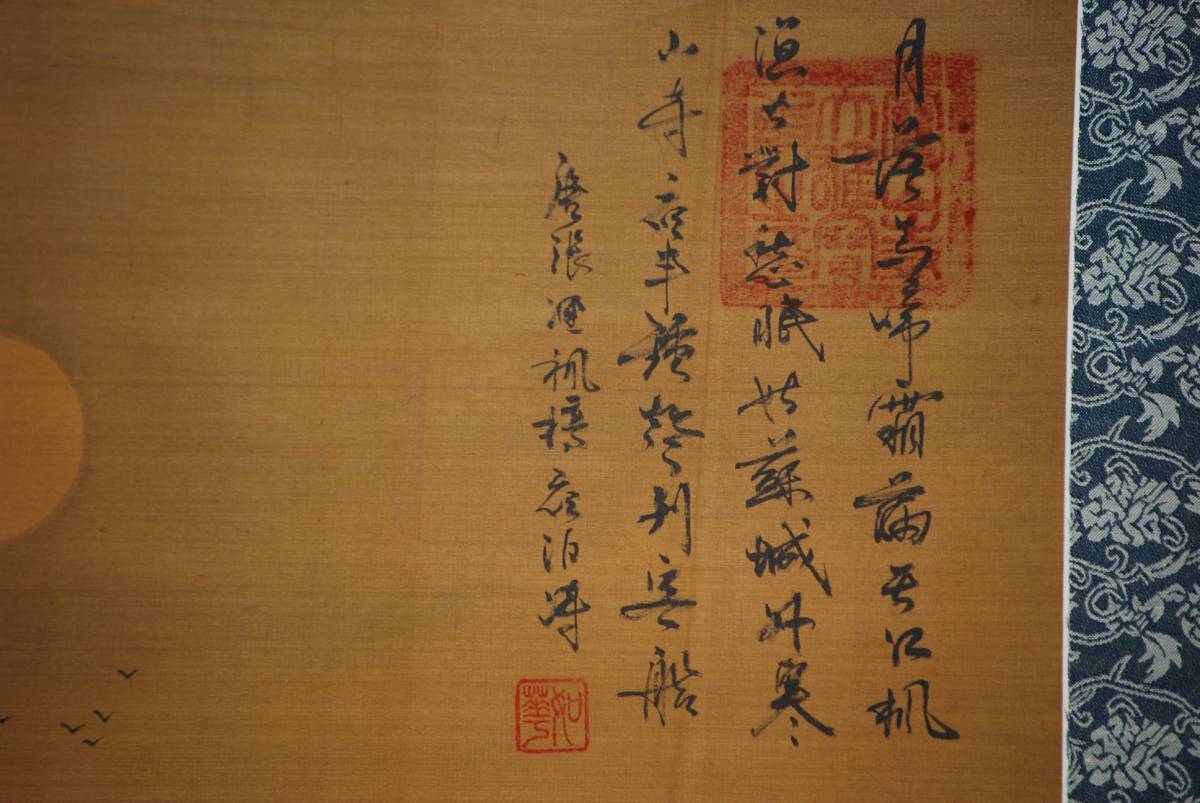 月落烏啼霜滿天江楓
漁火對愁眠姑蘇城外寒
山寺夜半鐘聲到客船
唐張繼楓橋夜泊詩
如華